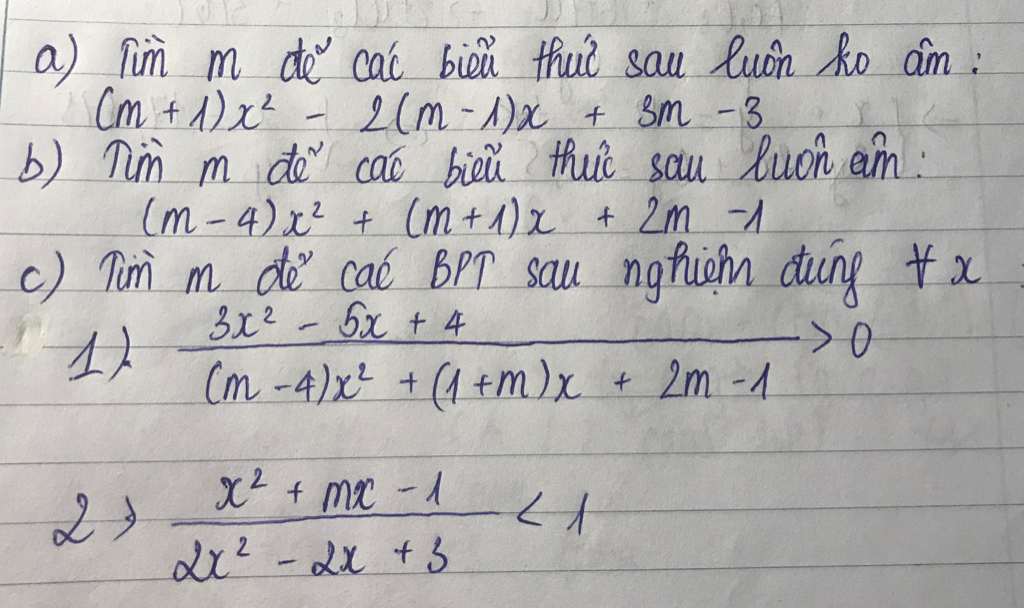 a) Tìm m để các biểu thức sau luôn ko âm :
(m + 1)x² - 2(m - 1)x + 3m - 3
b) Tìm m để các biểu thức sau luôn âm :
(m - 4)x² + (m + 1)x + 2m - 1
c) Tìm m để các BPT sau nghiệm đúng ∀ x
1) (3x² - 5x + 4) / ((m - 4)x² + (1 + m)x + 2m - 1) > 0
2) (x² + mx - 1) / (2x² - 2x + 3) < 1